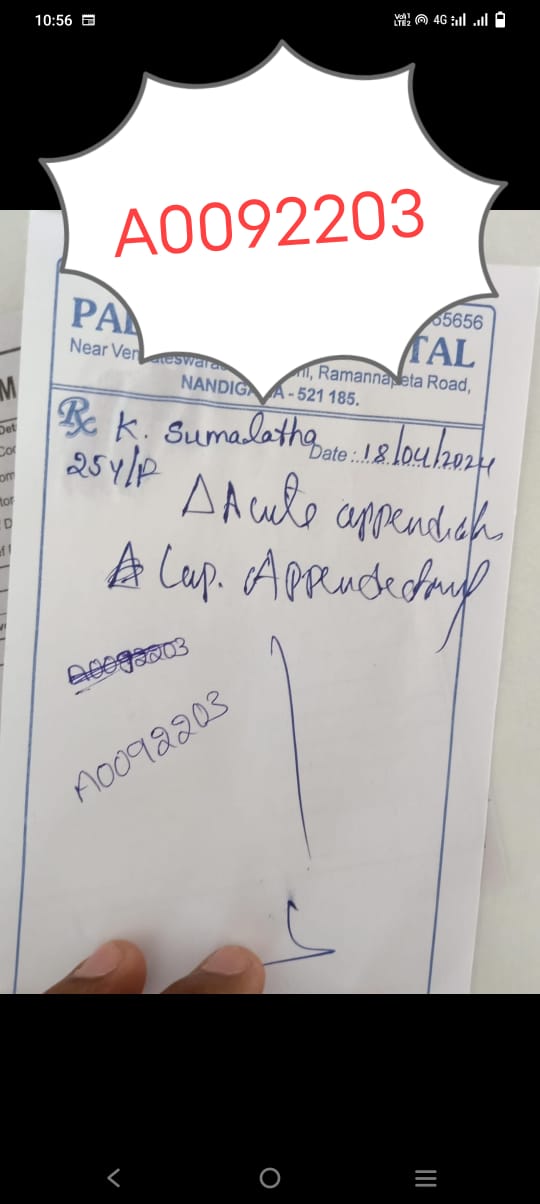 10:56
Vo1
LTE2
4G
A0092203
PA
TAL
65656
Near Ven
Ramannapeta Road,
NANDIG
A - 521 185.
Rx K. Sumalatha Date : 18/04/2024
25Y/F
Δ Acute appendicitis
Lap. Appendectomy
A0092203
A0092203